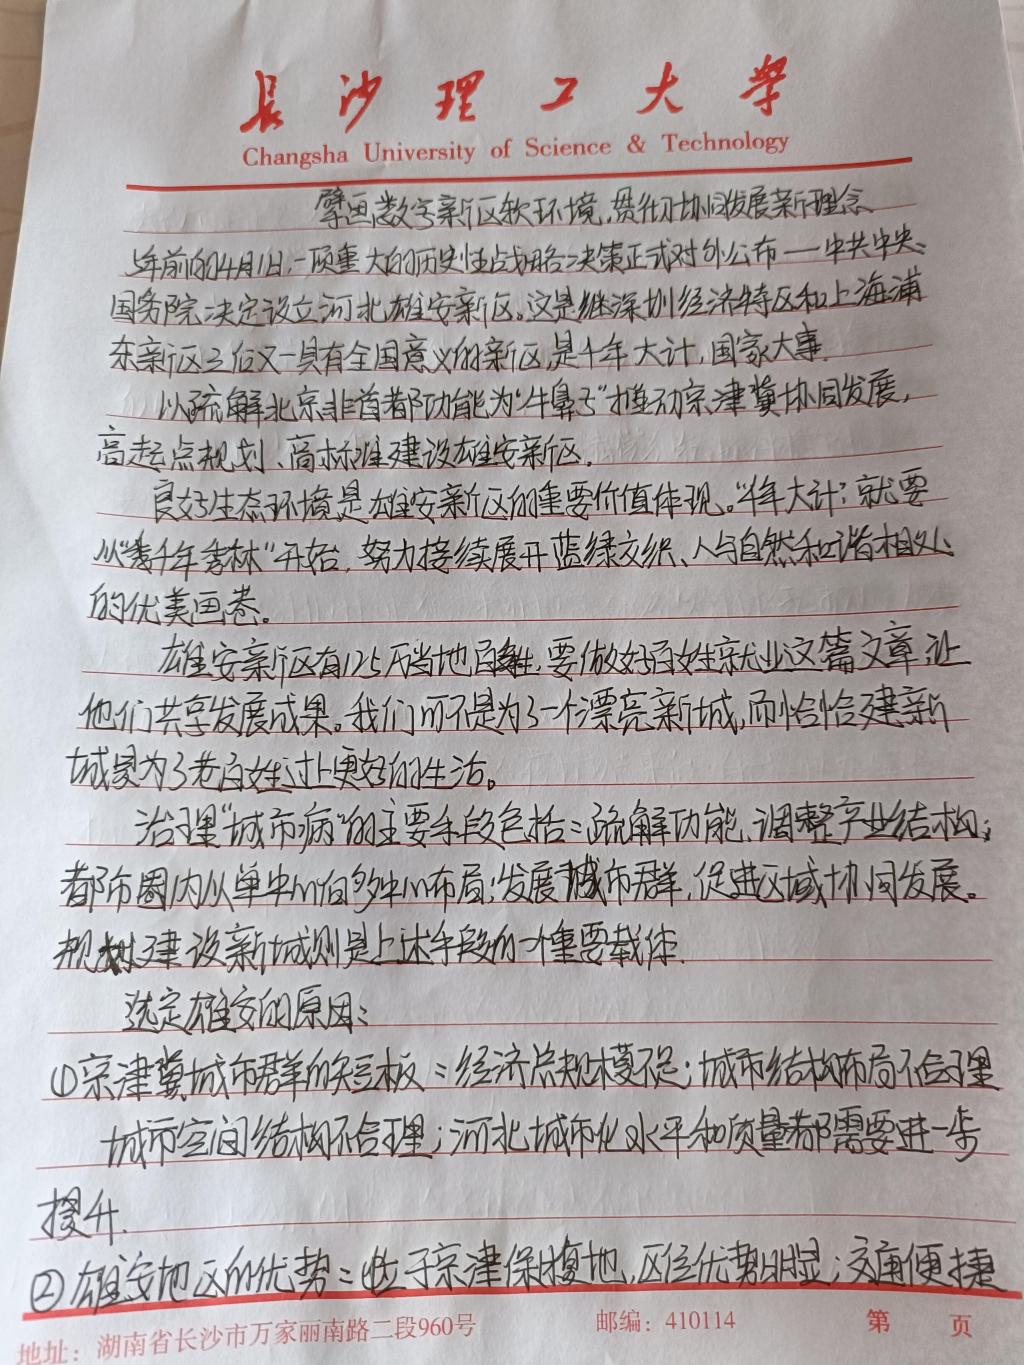 长沙理工大学
Changsha University of Science & Technology
擘画数字新区软环境,贯彻协同发展新理念
5年前的4月1日,一项重大的历史性战略决策正式对外公布——中共中央、
国务院决定设立河北雄安新区。这是继深圳经济特区和上海浦
东新区之后又一具有全国意义的新区,是千年大计,国家大事.
以疏解北京非首都功能为“牛鼻子”推动京津冀协同发展,
高起点规划、高标准建设雄安新区.
良好生态环境是雄安新区的重要价值体现。“千年大计”就要
从“千年秀林”开始,努力接续展开蓝绿交织、人与自然和谐相处
的优美画卷。
雄安新区有125万当地百姓,要做好百姓就业这篇文章让
他们共享发展成果。我们可不是为了一个漂亮新城,而恰恰建新
城是为了老百姓过上更好的生活。
治理“城市病”的主要手段包括:疏解功能、调整产业结构;
都市圈内从单中心向多中心布局;发展城市群,促进区域协同发展。
规划建设新城则是上述手段的一个重要载体.
选定雄安的原因:
①京津冀城市群的短板:经济总规模不足;城市结构布局不合理
城市空间结构不合理;河北城市化水平和质量都需要进一步
提升.
②雄安地区的优势:位于京津保腹地,区位优势明显;交通便捷
地址:湖南省长沙市万家丽南路二段960号 邮编:410114 第 页